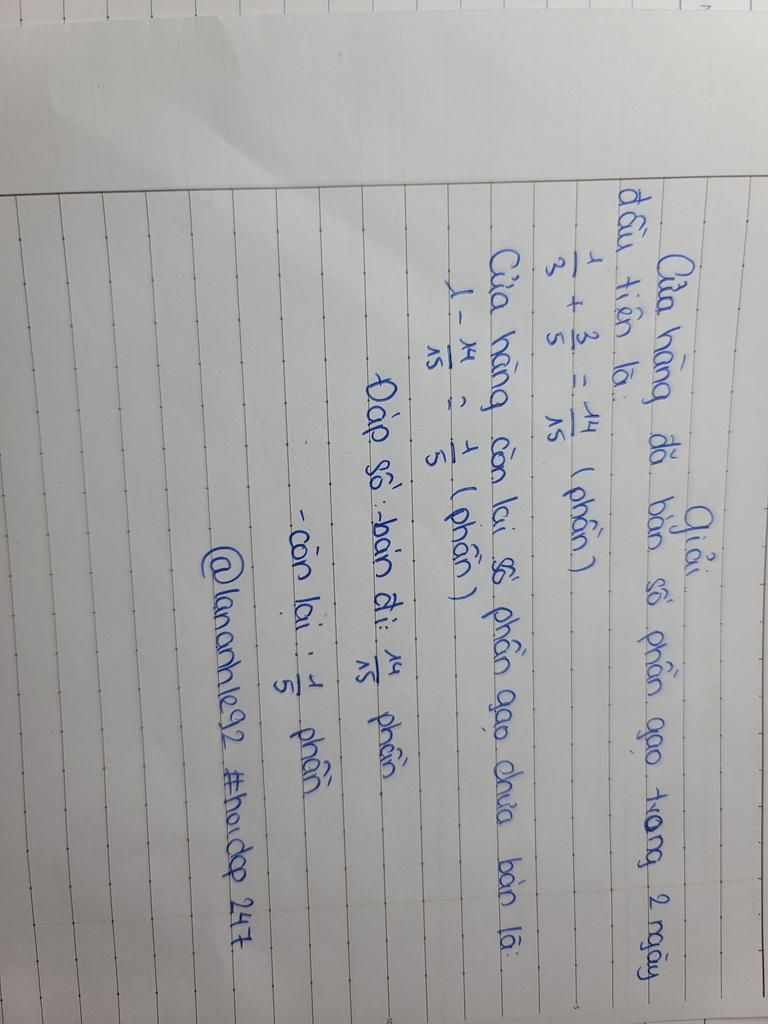 Giải
Cửa hàng đã bán số phần gạo trong 2 ngày
đầu tiên là:
1/3 + 3/5 = 14/15 (phần)
Cửa hàng còn lại số phần gạo chưa bán là:
1 - 14/15 = 1/5 (phần)
Đáp số: -bán đi: 14/15 phần
- còn lại : 1/5 phần
@lananhle92 #hoidap 247